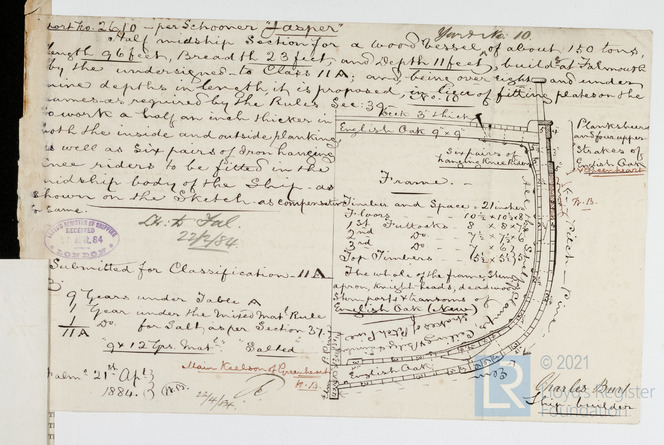 Port No. 2680 - per Schooner "Jasper"
Yard No. 10.
Half midship Section for a wood vessel of about 150 tons,
Length 96 feet, Breadth 23 feet, and Depth 11 feet, built at Falmouth
by the undersigned to Class 11A; and being over eight and under
nine depths in length, it is proposed, in lieu of fitting plates on the
as required by the Rules Sec: 39.
to work a half an inch thicker in
both the inside and outside planking
as well as six pairs of Iron hanging
knee riders to be fitted in the
midship body of the Ship - as
shown on the Sketch - as compensation
for same.
RECEIVED
84
LONDON
22/4/84.
Submitted for Classification 11A
9 Years under Table A
1 Year under the Mixed Mat' Rule
1 Do. for Salt, as per Section 37.
11A
9 & 12 Yrs. Mat' Salted
Main Keelson of Greenheart
N.B.
Falmo' 21st Apl
1884.
22/4/84.
Deck 3" thick
English Oak 9" x 9"
Six pairs of
hanging Knee Riders
Frame.
Timber and Space - 21 inches
Floors
1st Futtocks
2nd Do.
3rd Do.
Top Timbers
The whole of the frame, Stem
apron, Knight heads, deadwood
Stern posts & transoms of
English Oak (New)
English Oak
Plank sheer
and four upper
Strakes of
English Oak
Greenheart
N.B.
Pitch - Pine
Elm
Charles Burt
Ship builder
LR
© 2021
Lloyd's Register
Foundation